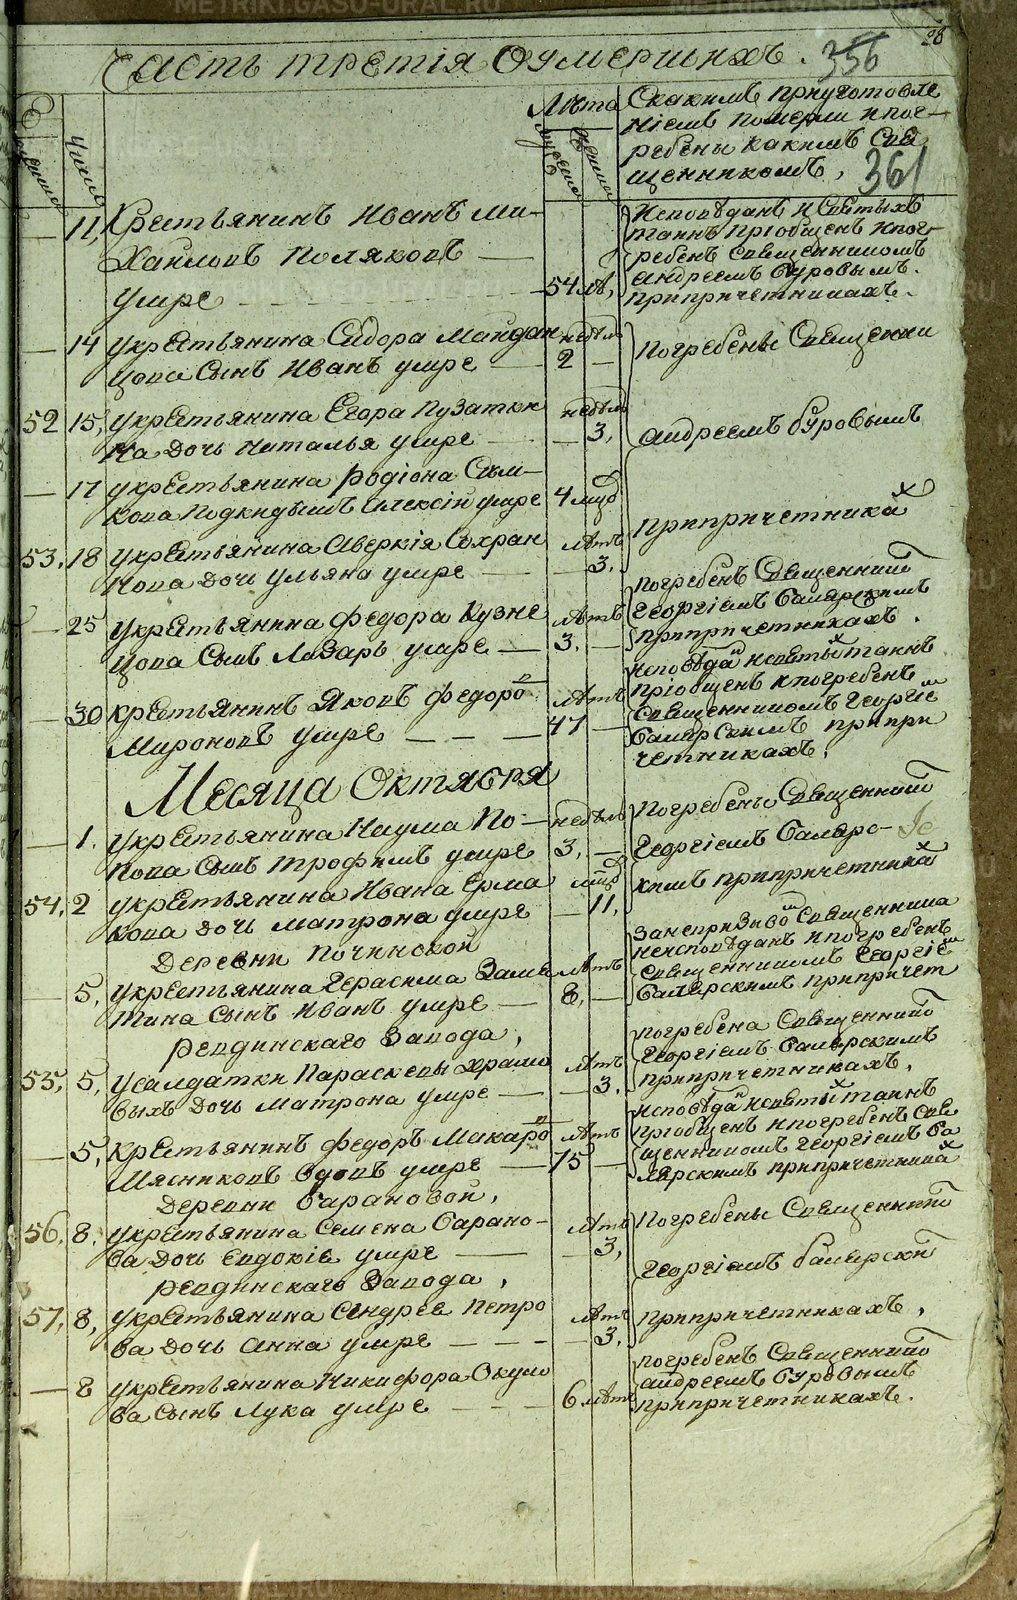 Часть третія Оумершихъ.
356
28
Числа
Лѣта
Скакимъ приуготовле
ніемъ померли и пог-
ребены какимъ Свя
щенникомъ,
361
11, Крестьянинъ Иванъ Ми-
Хайловъ Поляковъ —
умре — 54 лѣ,
Исповѣданъ и Святыхъ
таинъ приобщенъ и пог-
ребенъ священникомъ
андреемъ буровымъ.
припричетникахъ.
— 14 укрестьянина Сидора Майдан недѣль
цова Сынъ Иванъ умре — 2 —
Погребены Священни
52 15, укрестьянина Егора Пузатки недѣль
на дочь Наталья умре — 3,
андреемъ буровымъ
— 17 укрестьянина Родіона Сым-
кова Подкидышъ Алексій умре 4 мцѣ
припричетниках
53, 18 укрестьянина Аверкія Сохран лѣтъ
нова дочь ульяна умре — 3,
— 25 укрестьянина Федора Кузне лѣтъ
цова Сынъ Лазарь умре — 3, —
погребенъ Священнико
георгіемъ балярскимъ
припричетникахъ.
— 30 крестьянинъ Яковъ федоров лѣтъ
Мироновъ умре — — — 47 —
исповѣдан исвятых таинъ
пріобщенъ и погребенъ
священникомъ георгіе
балярскимъ припри
четникахъ.
Месяца Октября
— 1. укрестьянина Наума По- недѣль
пова Сынъ трофимъ умре 3, —
Погребены Священнико
георгіемъ балярс-
кимъ припричетниках
54, 2 укрестьянина Ивана Ерма мцѣ
кова дочь матрона умре — 11,
Деревни Починской
— 5, укрестьянина Герасима Замя лѣтъ
тина Сынъ Иванъ умре — 8, —
занепризывом Священника
неисповѣданъ и погребенъ
священникомъ георгіем
балярскимъ припричет
ревдинскаго Завода,
55, 5, усалдатки Параскевы храмо лѣтъ
выхъ дочь матрона умре — 3,
погребена Священнико
георгіемъ балярскимъ
припричетникахъ.
— 5, крестьянинъ федоръ Макаров лѣтъ
Мясниковъ вдовъ умре — 75 —
исповѣдан исвятых таинъ
приобщенъ и погребенъ свя
щенникомъ георгіемъ ба
лярскимъ припричетниках
Деревни барановой,
56, 8, укрестьянина Семена барано- лѣтъ
ва дочь евдокія умре — 3,
Погребены Священнико
георгіемъ балярски
ревдинскаго Завода,
57, 8, укрестьянина Андрея петро лѣтъ
ва дочь анна умре — — — 3,
припричетникахъ,
— 8 укрестьянина Никифора Окуло
ва Сынъ Лука умре — — 6 лѣтъ
погребенъ Священнико
андреемъ буровымъ
припричетникахъ.